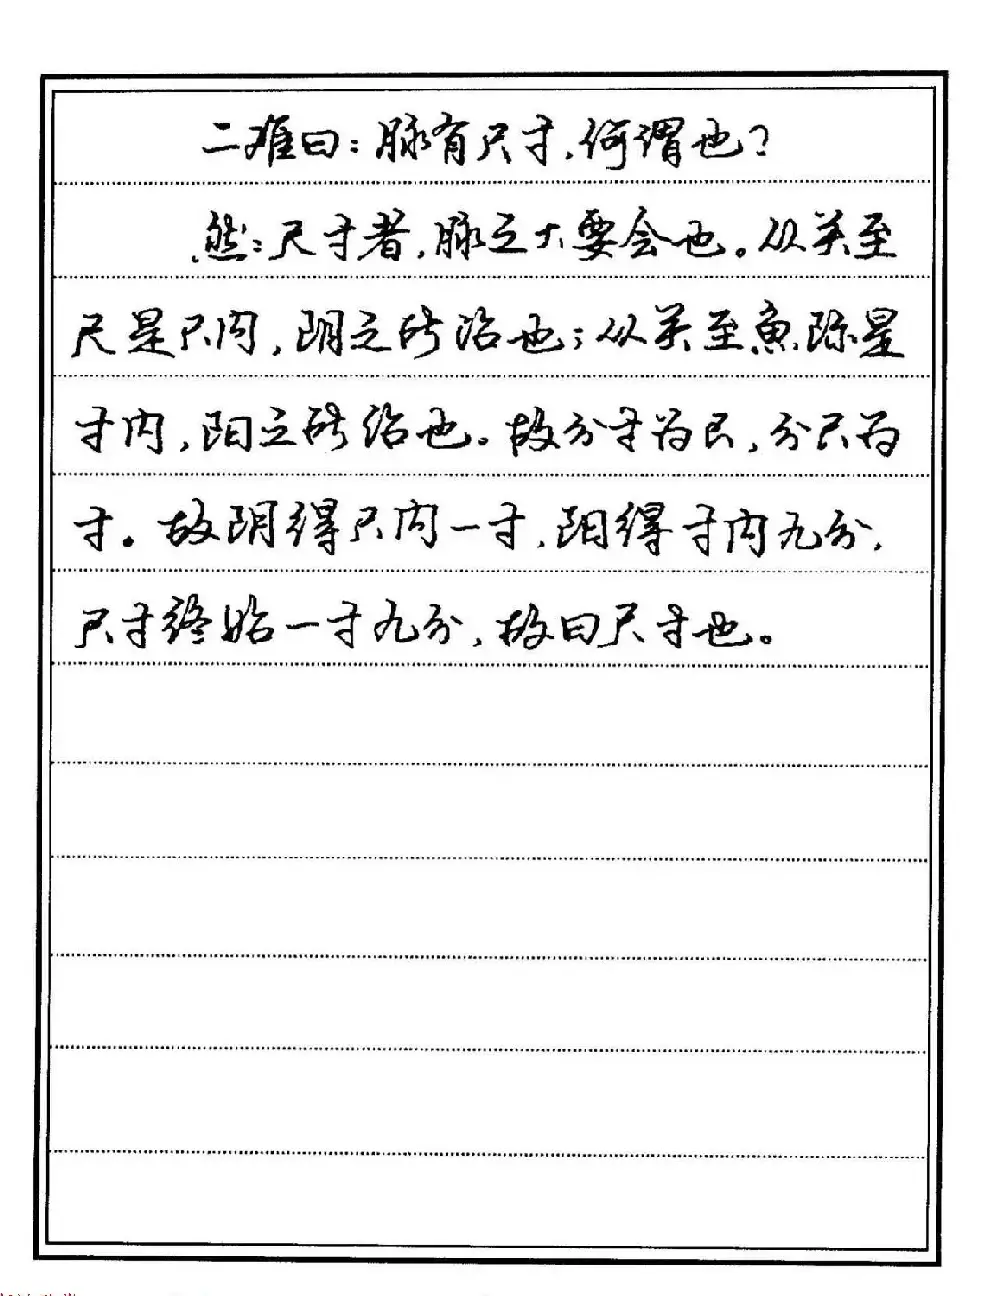 二难曰：脉有尺寸，何谓也？
然：尺寸者，脉之大要会也。从关至
尺是尺内，阴之所治也；从关至鱼际是
寸内，阳之所治也。故分寸为尺，分尺为
寸。故阴得尺内一寸，阳得寸内九分，
尺寸终始一寸九分，故曰尺寸也。